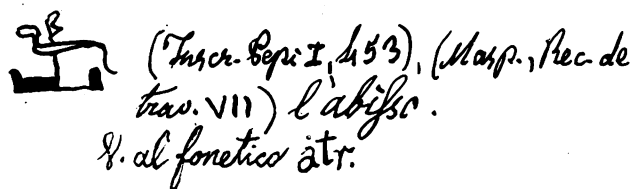 (Inscr. Pepi I, 453), (Masp., Rec. de
trav. VII) l'abisso.
V. al fonetico åtr.